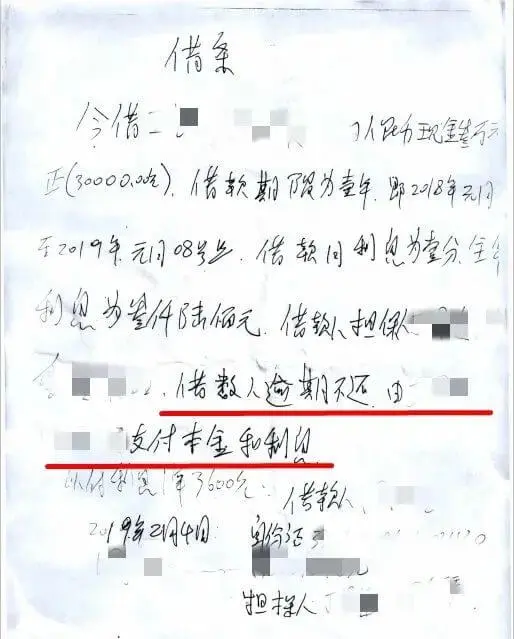 借条
今借 人民币现金叁万元
正(30000.00元)，借款期限为壹年，即2018年元月
至2019年元月08号止，借款月利息为壹分，全年
利息为叁仟陆佰元，借款人担保人
借款人逾期不还，由
支付本金和利息
以付利息1年3600元
借款人
2019年2月4日 身份证
担保人